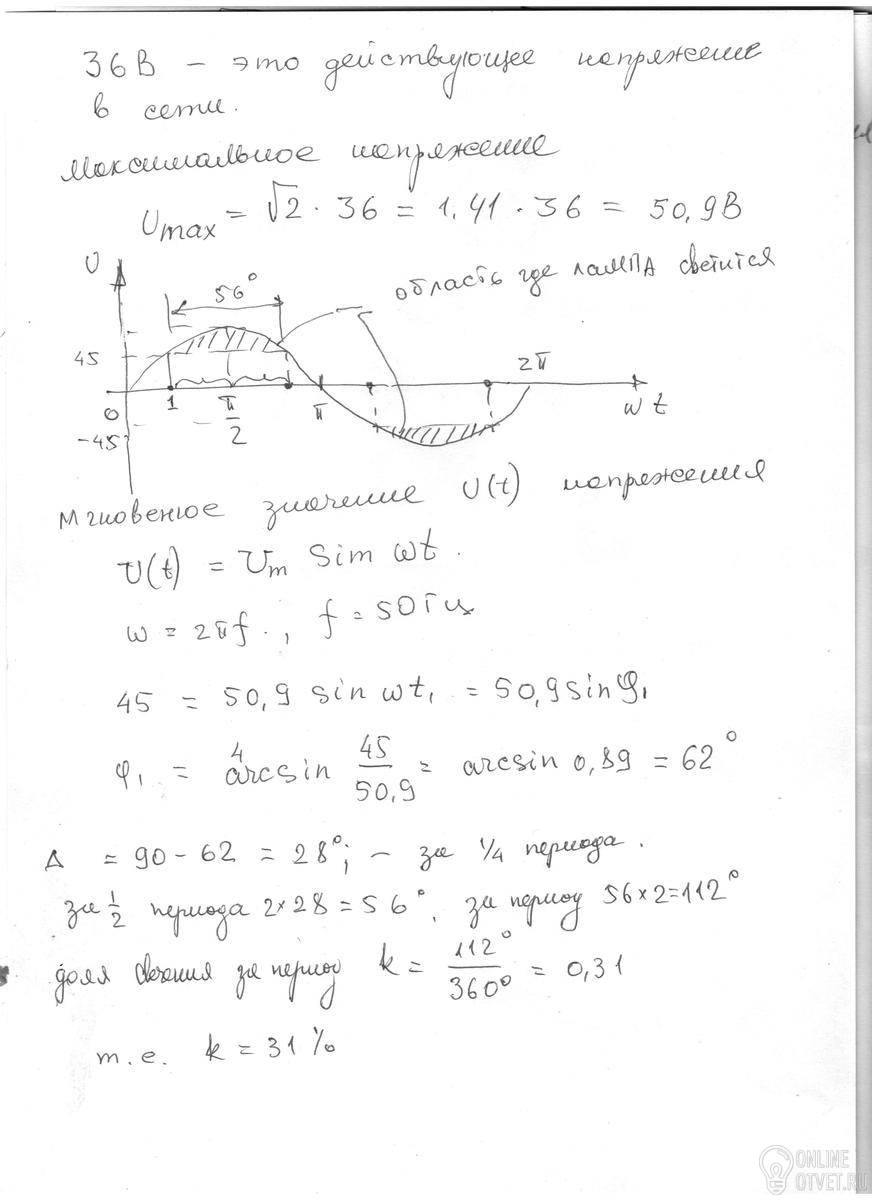 36В – это действующее напряжение
в сети.
Максимальное напряжение
Umax = √2 · 36 = 1,41 · 36 = 50,9В
U
56°
область где лампа светится
45
0
1
π/2
π
2π
ωt
-45
Мгновеное значение U(t) напряжения
U(t) = Um sin ωt.
ω = 2πf., f = 50Гц
45 = 50,9 sin ωt₁ = 50,9 sin φ₁
φ₁ = arcsin 45/50,9 = arcsin 0,89 = 62°
Δ = 90 - 62 = 28°; – за 1/4 периода.
за 1/2 периода 2×28 = 56°, за период 56×2=112°
доля свечения за период k = 112°/360° = 0,31
т.е. k = 31%
ONLINE
OTVET.RU